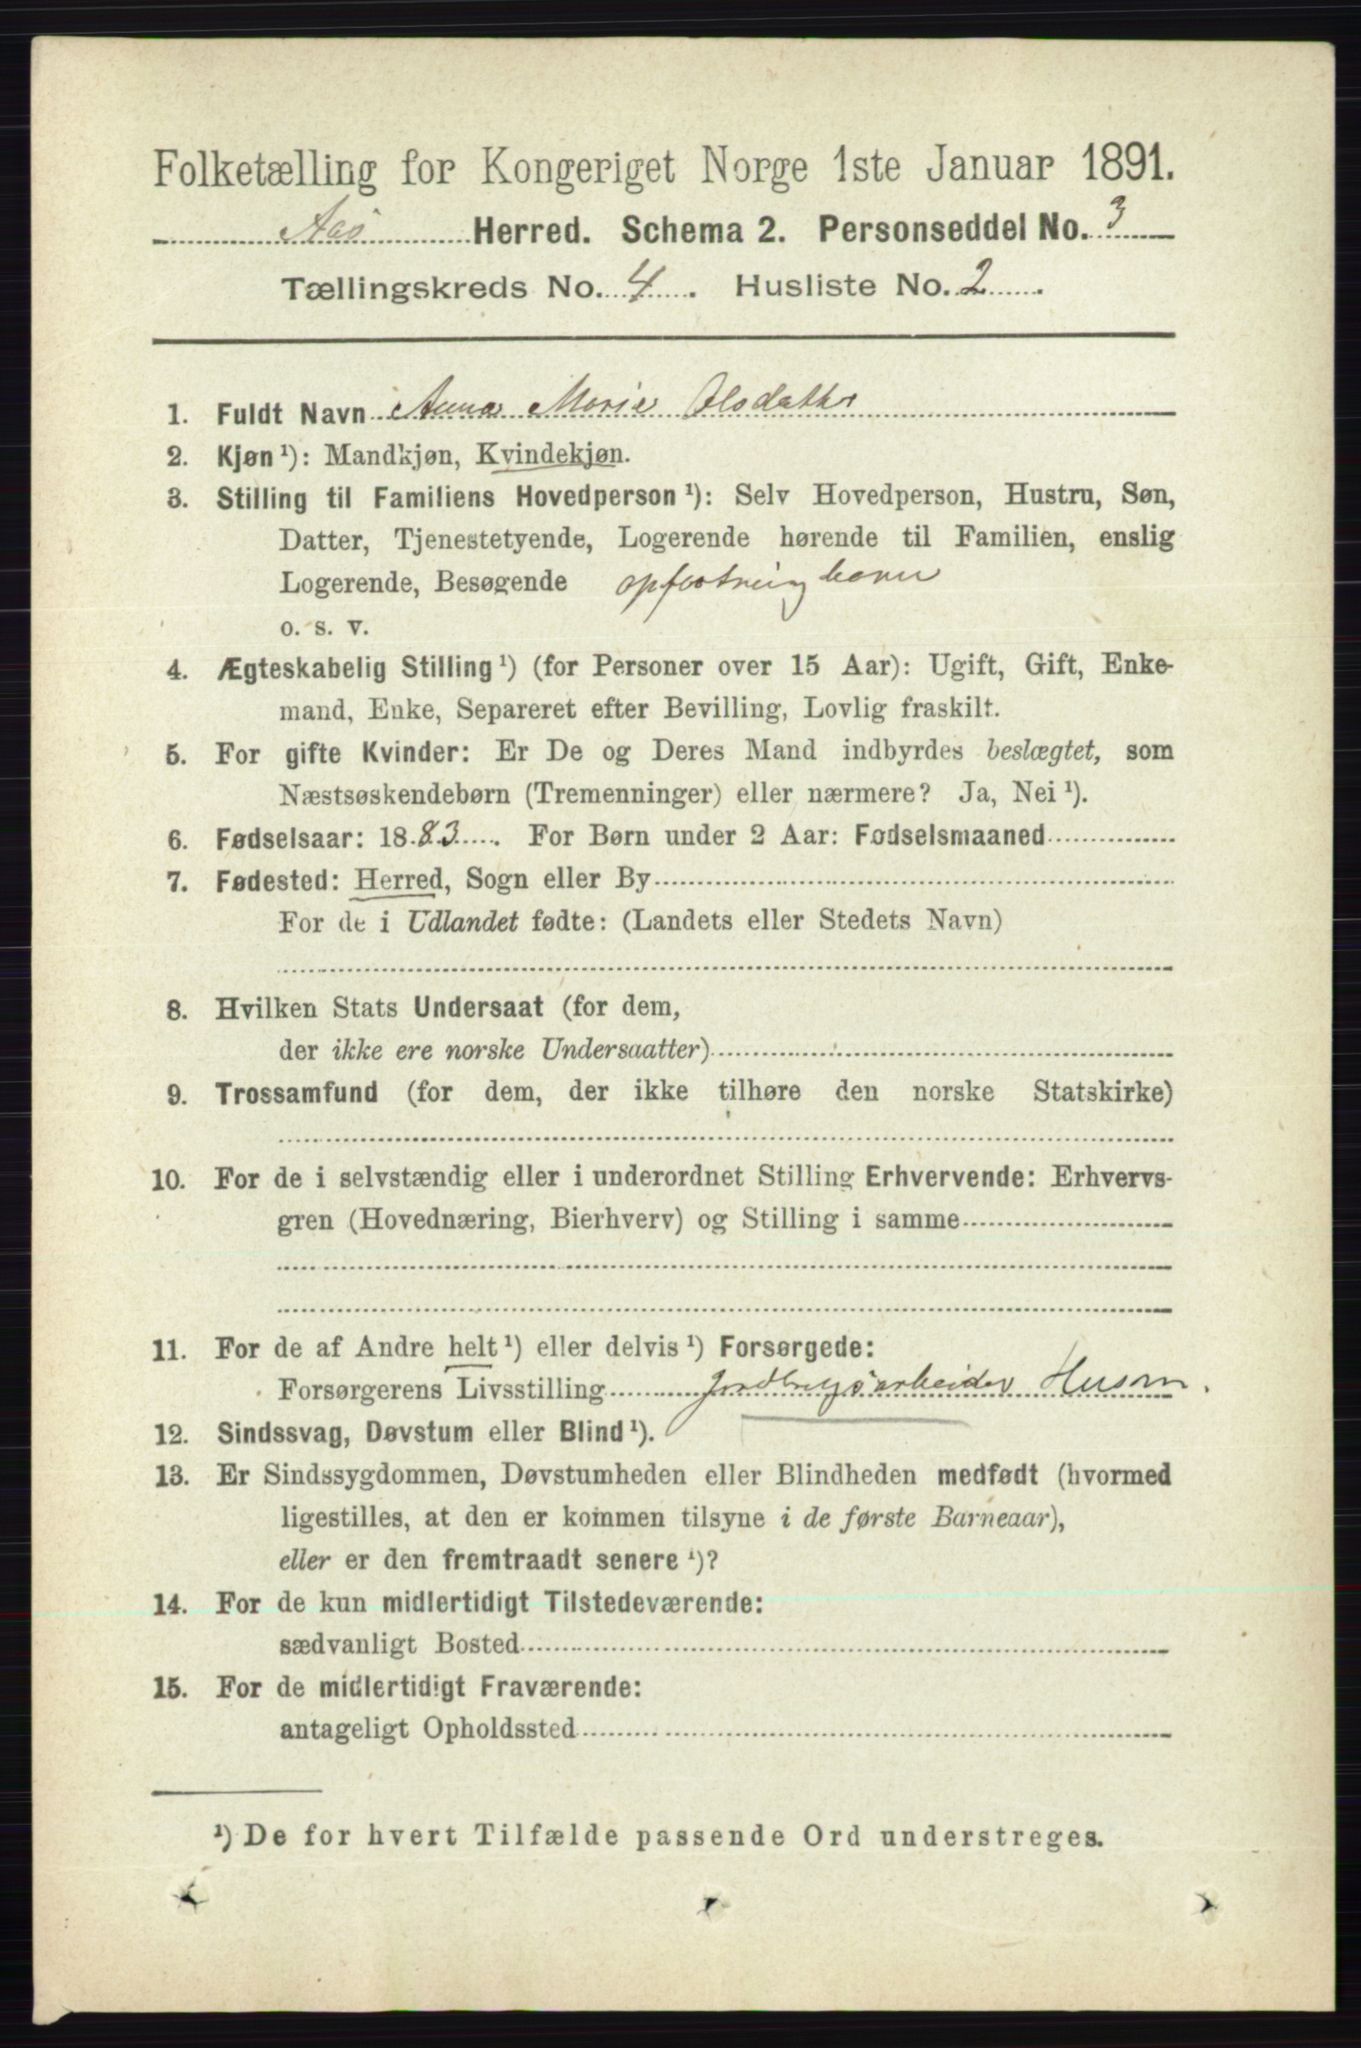 Folketælling for Kongeriget Norge 1ste Januar 1891.
Aas Herred. Schema 2. Personseddel No. 3
Tællingskreds No. 4. Husliste No. 2.
1. Fuldt Navn Anna Marie Olsdatter
2. Kjøn ¹): Mandkjøn, Kvindekjøn.
3. Stilling til Familiens Hovedperson ¹): Selv Hovedperson, Hustru, Søn,
Datter, Tjenestetyende, Logerende hørende til Familien, enslig
Logerende, Besøgende opfostringbarn
o. s. v.
4. Ægteskabelig Stilling ¹) (for Personer over 15 Aar): Ugift, Gift, Enke-
mand, Enke, Separeret efter Bevilling, Lovlig fraskilt.
5. For gifte Kvinder: Er De og Deres Mand indbyrdes beslægtet, som
Næstsøskendebørn (Tremenninger) eller nærmere? Ja, Nei ¹).
6. Fødselsaar: 1883. For Børn under 2 Aar: Fødselsmaaned
7. Fødested: Herred, Sogn eller By
For de i Udlandet fødte: (Landets eller Stedets Navn)
8. Hvilken Stats Undersaat (for dem,
der ikke ere norske Undersaatter)
9. Trossamfund (for dem, der ikke tilhøre den norske Statskirke)
10. For de i selvstændig eller i underordnet Stilling Erhvervende: Erhvervs-
gren (Hovednæring, Bierhverv) og Stilling i samme
11. For de af Andre helt ¹) eller delvis ¹) Forsørgede:
Forsørgerens Livsstilling Jordbrugsarbeider Husm.
12. Sindssvag, Døvstum eller Blind ¹).
13. Er Sindssygdommen, Døvstumheden eller Blindheden medfødt (hvormed
ligestilles, at den er kommen tilsyne i de første Barneaar),
eller er den fremtraadt senere ¹)?
14. For de kun midlertidigt Tilstedeværende:
sædvanligt Bosted
15. For de midlertidigt Fraværende:
antageligt Opholdssted
¹) De for hvert Tilfælde passende Ord understreges.